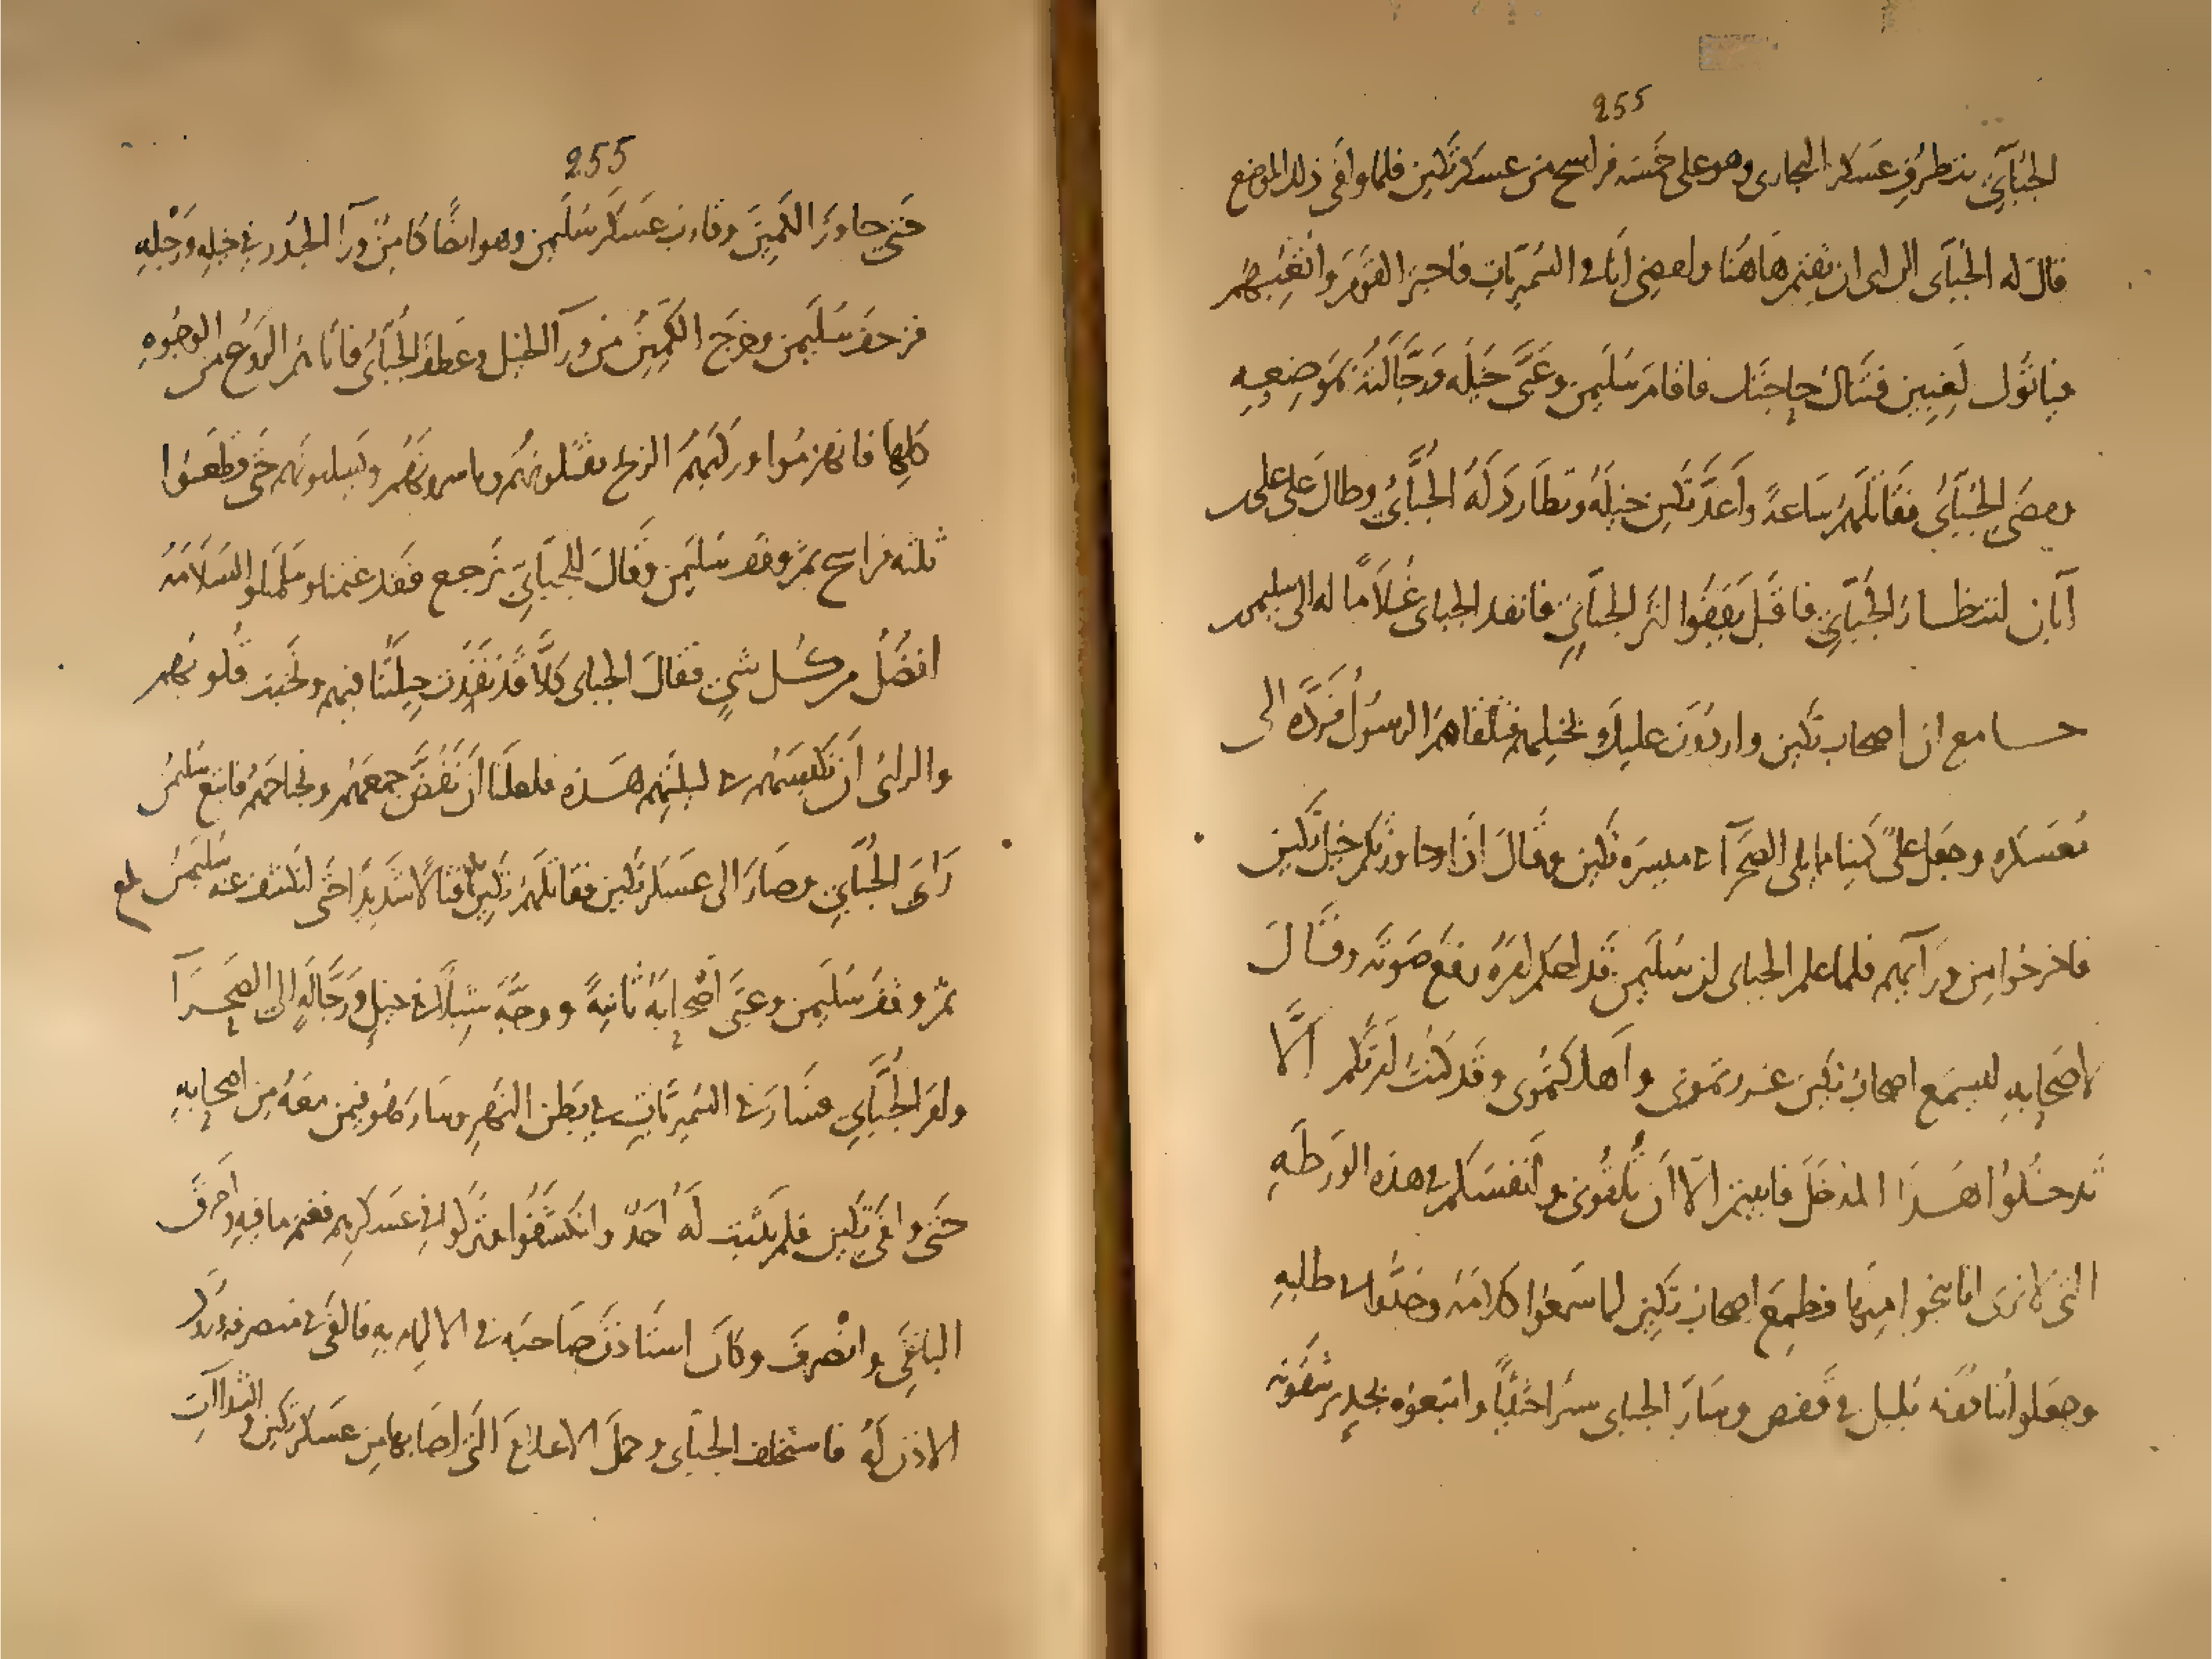 255
الجبّآئي بتطرف عسكر البخارى وهو على خمسه فراسخ من عسكر تكين فلما وافى ذلك الموضع
قال له الجبآى الراى ان تقيم هاهنا وامضى انا فى السميريات فاجر القوم واتعبهم
فياتوك لغبين فتنال حاجتك فاقام سليمن وعبى خيله ورجالته بموضعه
ومضى الجبآئي فقاتلهم ساعةً وأعدّ تكين خيله وتطارد له الجبّائي وطال على سليمن
فانفد الجباى غلاما له الى سليمن
مع ان اصحاب تكين واردون عليك بخيلهم فتلقاهم الرسول فرده الى
معسكره وجعل كمينا مما يلى الصحرآ فى ميسره تكين وقال اذا جاوزتكم خيل تكين
فاخرجوا من ورآيهم فلما علم الجباى ان سليمن قد احكم امره رفع صوته وقال
لاصحابه ليسمع اصحاب تكين غررتمونى واهلكتمونى وقد كنت امرتكم الّا
تدخلوا هذا المدخل فابيتم الّا ان تلقونى وانفسكم فى هذه الورطه
التى لا نرى انا ننجوا منها فطمع اصحاب تكين لما سمعوا كلامه وجدوا فى طلبه
وجعلوا ينادونه بلبل فى قفص وسار الجباى سيرا حثيثا واتبعوه بجد يرشقونه
255
حتى جاوز الكمين وقارب عسكر سليمن وهو ايضا كامن ورآ الجدر فى خيله ورجله
فزحف سليمن وخرج الكمين من ورآ الخيل وعطف الجبّآئي فاتاهم الروع من الوجوه
كلها فانهزموا وركبهم الزنج يقتلونهم وياسرونهم ويسلبونهم حتى قطعوا
ثلثه فراسخ ثم وقف سليمن وقال للجبآئي نرجع فقد غنمنا وسلمنا والسلامه
افضل من كل شي فقال الجباى كلّا قد نفذت حيلتنا فيهم ونخبت قلوبهم
والراى ان نكبسهم فى ليلتهم هذه فلعلنا ان نفض جمعهم ونجتاحهم فاتبع سليمن
راى الجبآئي وصار الى عسكر تكين فقاتلهم تكين قتالا شديدا حتى انكشف عنه سليمن
ثم وقف سليمن وعبى اصحابه ثانية ووجه شبلا فى خيل ورجاله الى الصحرآ
وامر الجبّآئي فسار فى السميريات فى بطن النهر وسار هو فيمن معه من اصحابه
حتى وافى تكين فلم يثبت له احدٌ وانكشفوا فتركوا عسكرهم فغنم ما فيه واحرق
الباقي وانصرف وكان استاذن صاحبه فى الالمام به فالفى فى منصرفه
الاذن له فاستخلف الجبآى وحمل الاعلام التى اصابها من عسكر تكين والشذاآت